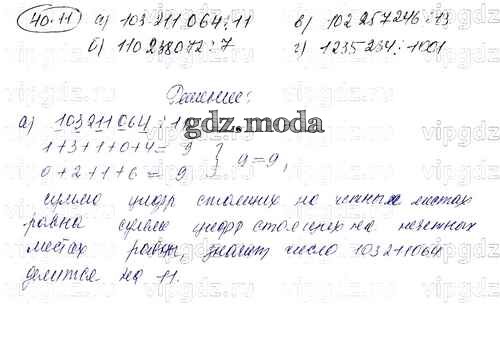 40.11 а) 103 211 064 ⋮ 11 в) 102 257 246 ⋮ 13
б) 110 238 072 ⋮ 7 г) 1235 234 ⋮ 1001
Решение:
а) 103211064 ⋮ 11
gdz.moda
1+3+1+0+4= 9
0+2+1+6 = 9 } 9=9,
сумма цифр стоящих на четных местах
равна сумме цифр стоящих на нечетных
местах равны, значит число 103211064
делится на 11.
vipgdz.com